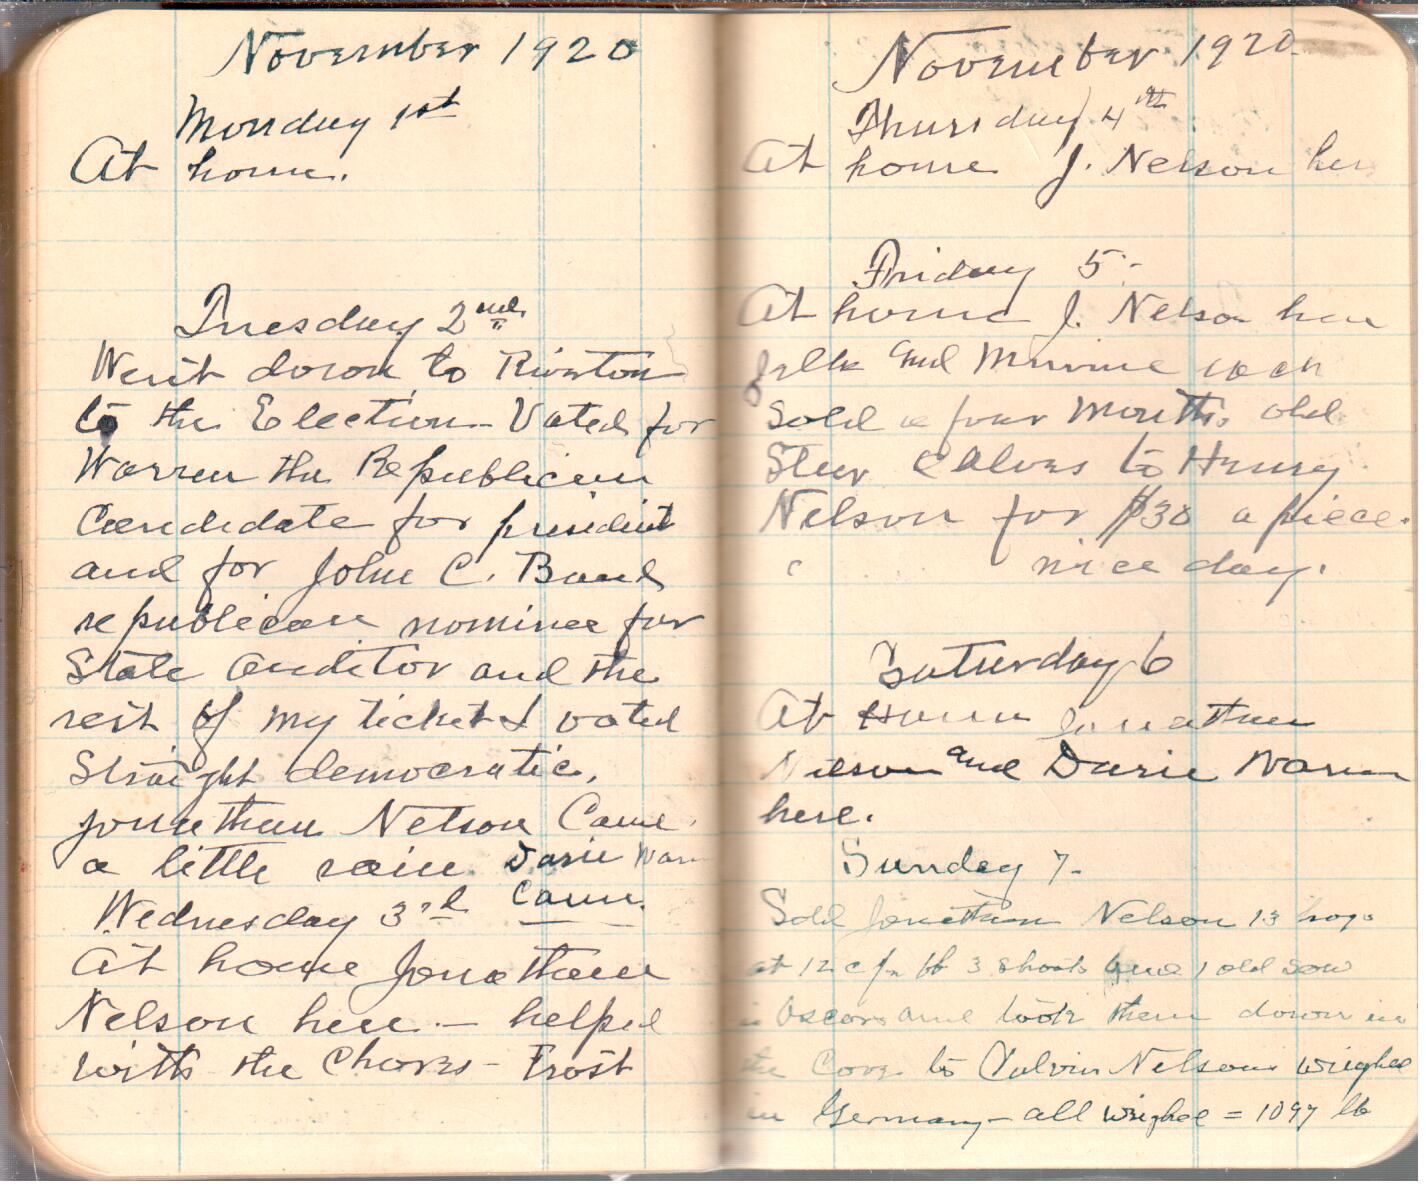 November 1920
Monday 1st
At home.
Tuesday 2nd
Went down to Riverton
to the Election - Voted for
Warren the Republican
Candidate for president
and for John C. Bond
republican nominee for
State auditor and the
rest of my ticket I voted
Straight democratic.
Jonathan Nelson Came.
a little rain. Dasie Warn
Came.
Wednesday 3rd
At home Jonathan
Nelson here - helped
with the Chores - Frost
November 1920
Thursday 4th
At home J. Nelson here
Friday 5 -
At home J. Nelson here
and
Sold four Months old
Steer Calves to Henry
Nelson for $30 a piece.
nice day.
Saturday 6
At Home Jonathan
Nelson and Dasie Warn
here.
Sunday 7 -
Sold Jonathan Nelson 13 hogs
at 12 c pr lb 3 Shoats and 1 old Sow
and took them down in
the Cove to Calvin Nelsons
in Germany - all = 1097 lb